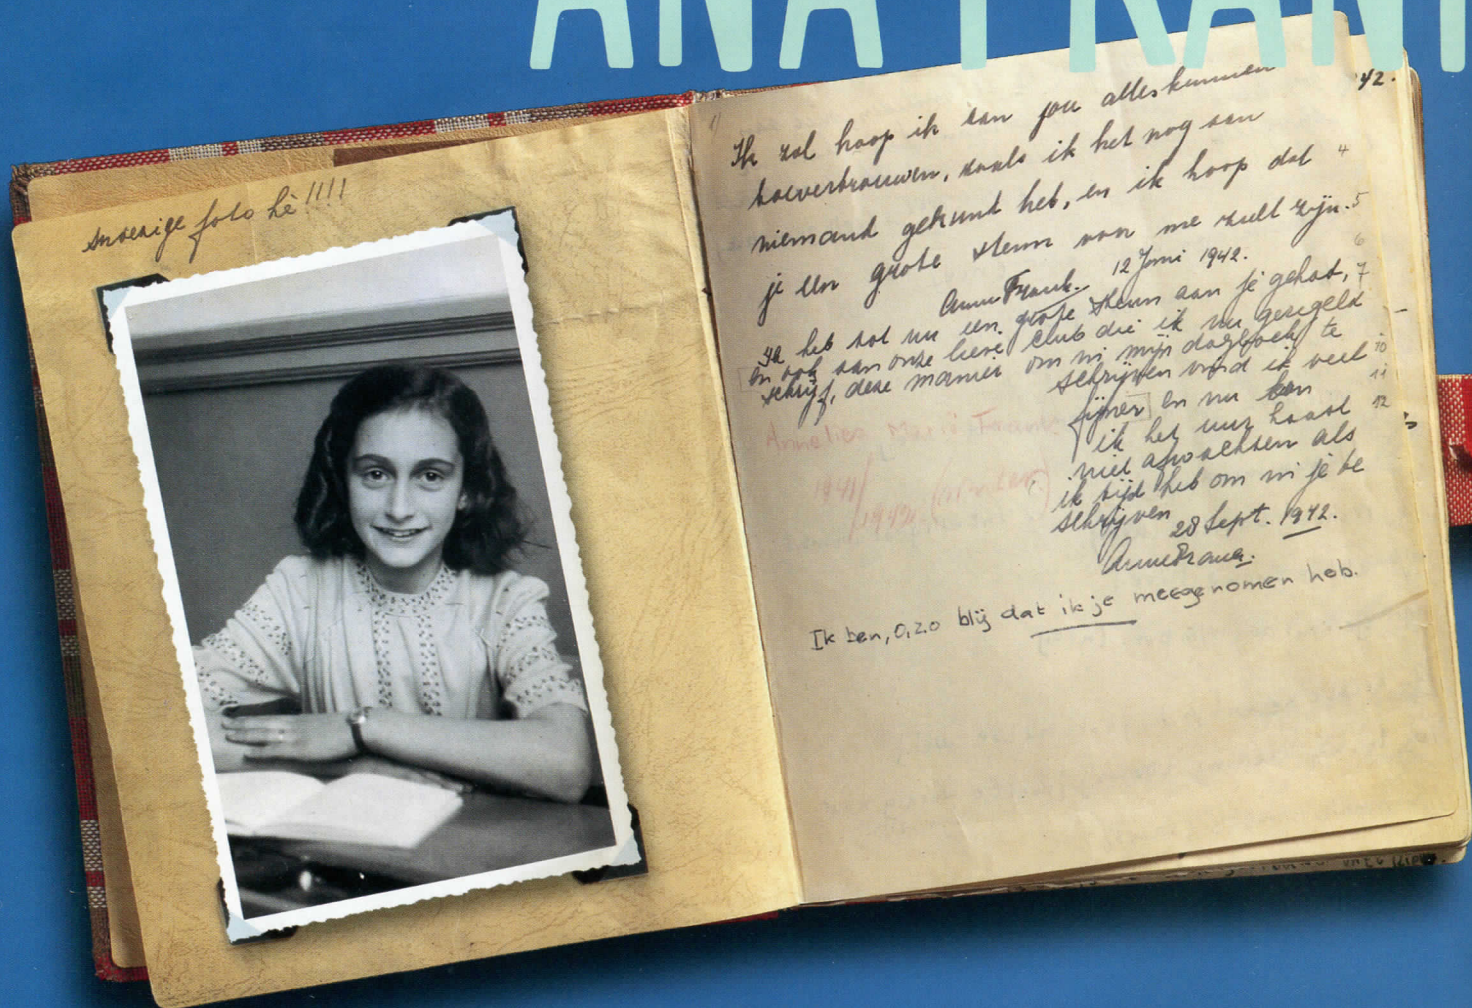 ANA FRANK
snoezige foto hè !!!!
42.
Ik zal hoop ik aan jou alles kunnen
toevertrouwen, zoals ik het nog aan
niemand gekund heb, en ik hoop dat
4
je een grote steun voor me zult zijn.
5
6
Anne Frank. 12 Juni 1942.
Ik heb tot nu een grote steun aan je gehad,
7
en ook aan onze lieve club die ik nu geregeld
schrijf, deze manier om in mijn dagboek te
schrijven vind ik veel
10
fijner en nu kan
11
ik het uur haast
12
niet afwachten als
ik tijd heb om in je te
schrijven
28 Sept. 1942.
Anne Frank.
Annelies Marie Frank
1941/
Ik ben, O, zo blij dat ik je meegenomen heb.